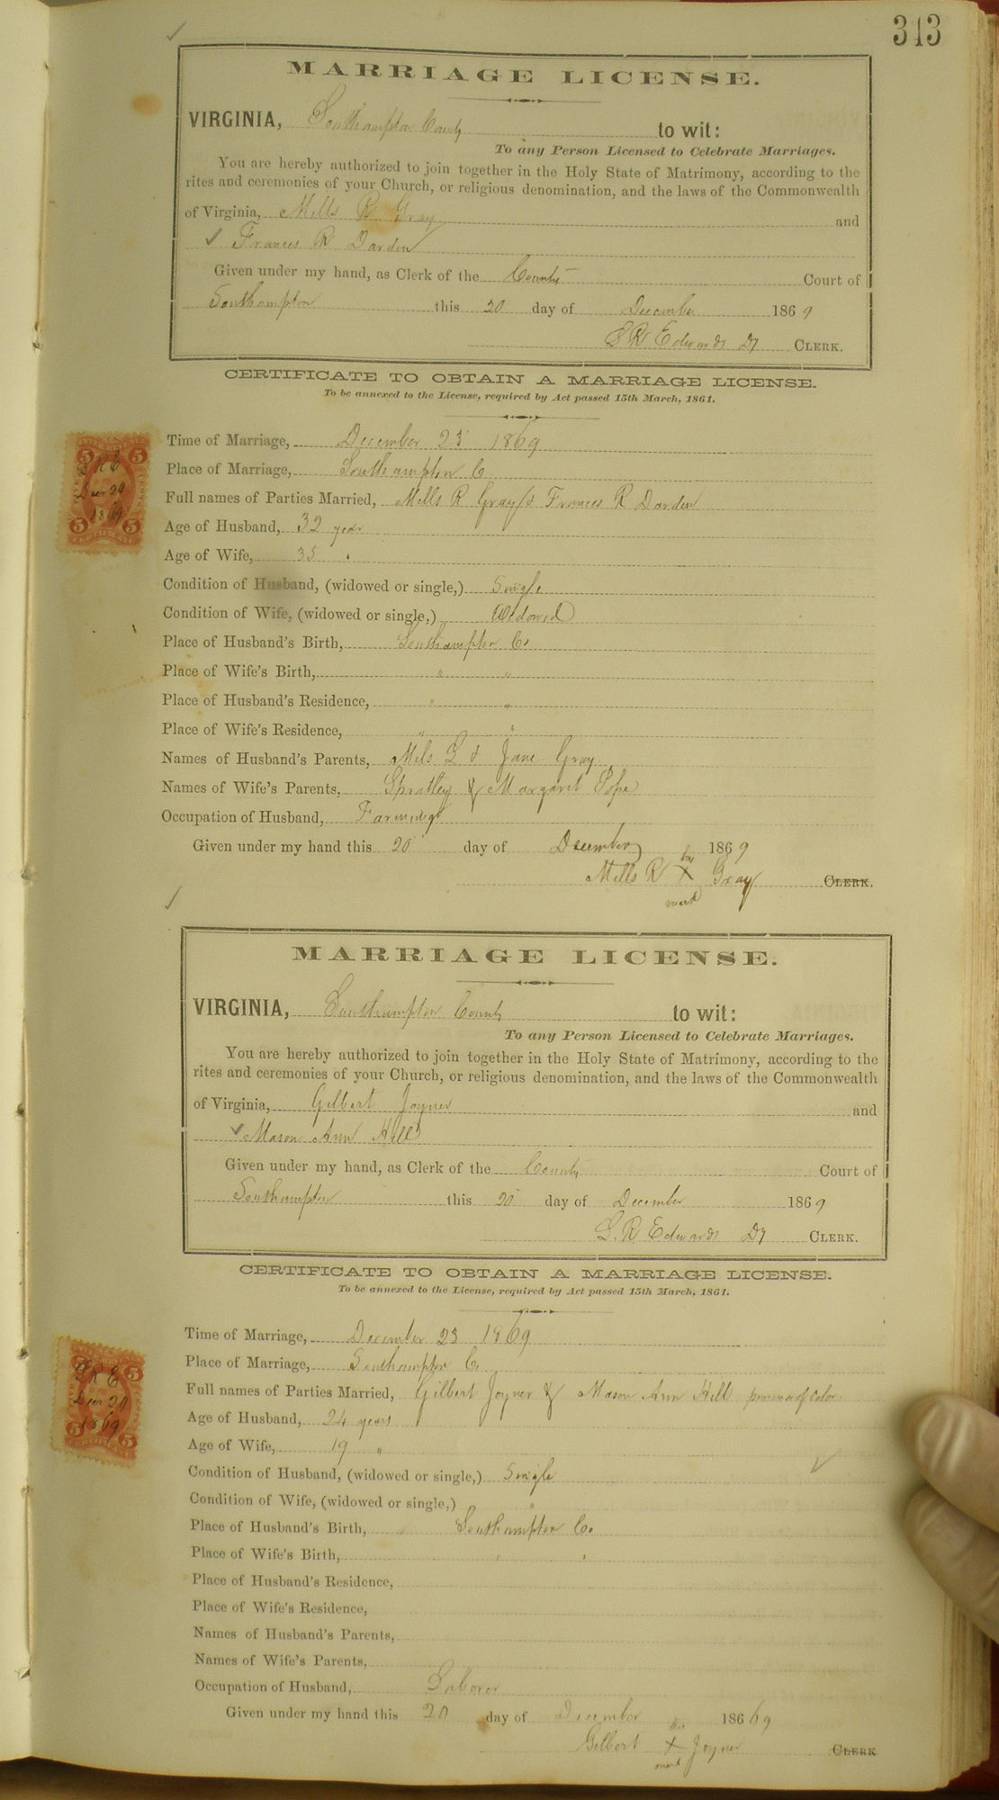 313
MARRIAGE LICENSE.
VIRGINIA, Southampton County to wit:
To any Person Licensed to Celebrate Marriages.
You are hereby authorized to join together in the Holy State of Matrimony, according to the
rites and ceremonies of your Church, or religious denomination, and the laws of the Commonwealth
of Virginia, Mills R Gray and
Frances R Darden
Given under my hand, as Clerk of the County Court of
Southampton this 20 day of December 1869
Edwards Dy CLERK.
CERTIFICATE TO OBTAIN A MARRIAGE LICENSE.
To be annexed to the License, required by Act passed 15th March, 1861.
Time of Marriage, December 23 1869
Place of Marriage, Southampton C
Full names of Parties Married, Mills R Gray & Frances R Darden
Age of Husband, 32 year
Age of Wife, 35 "
Condition of Husband, (widowed or single,) Single
Condition of Wife, (widowed or single,) Widowed
Place of Husband's Birth, Southampton Co
Place of Wife's Birth, " "
Place of Husband's Residence, " "
Place of Wife's Residence, " "
Names of Husband's Parents, & Jane Gray
Names of Wife's Parents, Spratley & Margaret Pope
Occupation of Husband, Farming
Given under my hand this 20 day of December 1869
Mills R his X mark Gray CLERK.
5 5
Dec 20
1869
5 5
MARRIAGE LICENSE.
VIRGINIA, Southampton County to wit:
To any Person Licensed to Celebrate Marriages.
You are hereby authorized to join together in the Holy State of Matrimony, according to the
rites and ceremonies of your Church, or religious denomination, and the laws of the Commonwealth
of Virginia, Gilbert Joyner and
Mason Ann Hill
Given under my hand, as Clerk of the County Court of
Southampton this 20 day of December 1869
L. R Edwards Dy CLERK.
CERTIFICATE TO OBTAIN A MARRIAGE LICENSE.
To be annexed to the License, required by Act passed 15th March, 1861.
Time of Marriage, December 23 1869
Place of Marriage, Southampton C
Full names of Parties Married, Gilbert Joyner & Mason Ann Hill persons of Color
Age of Husband, 24 years
Age of Wife, 19 "
Condition of Husband, (widowed or single,) Single
Condition of Wife, (widowed or single,) "
Place of Husband's Birth, Southampton Co
Place of Wife's Birth, " "
Place of Husband's Residence,
Place of Wife's Residence,
Names of Husband's Parents,
Names of Wife's Parents,
Occupation of Husband, Laborer
Given under my hand this 20 day of December 18669
Gilbert his X mark Joyner CLERK
5
Dec 20
1869
5 5